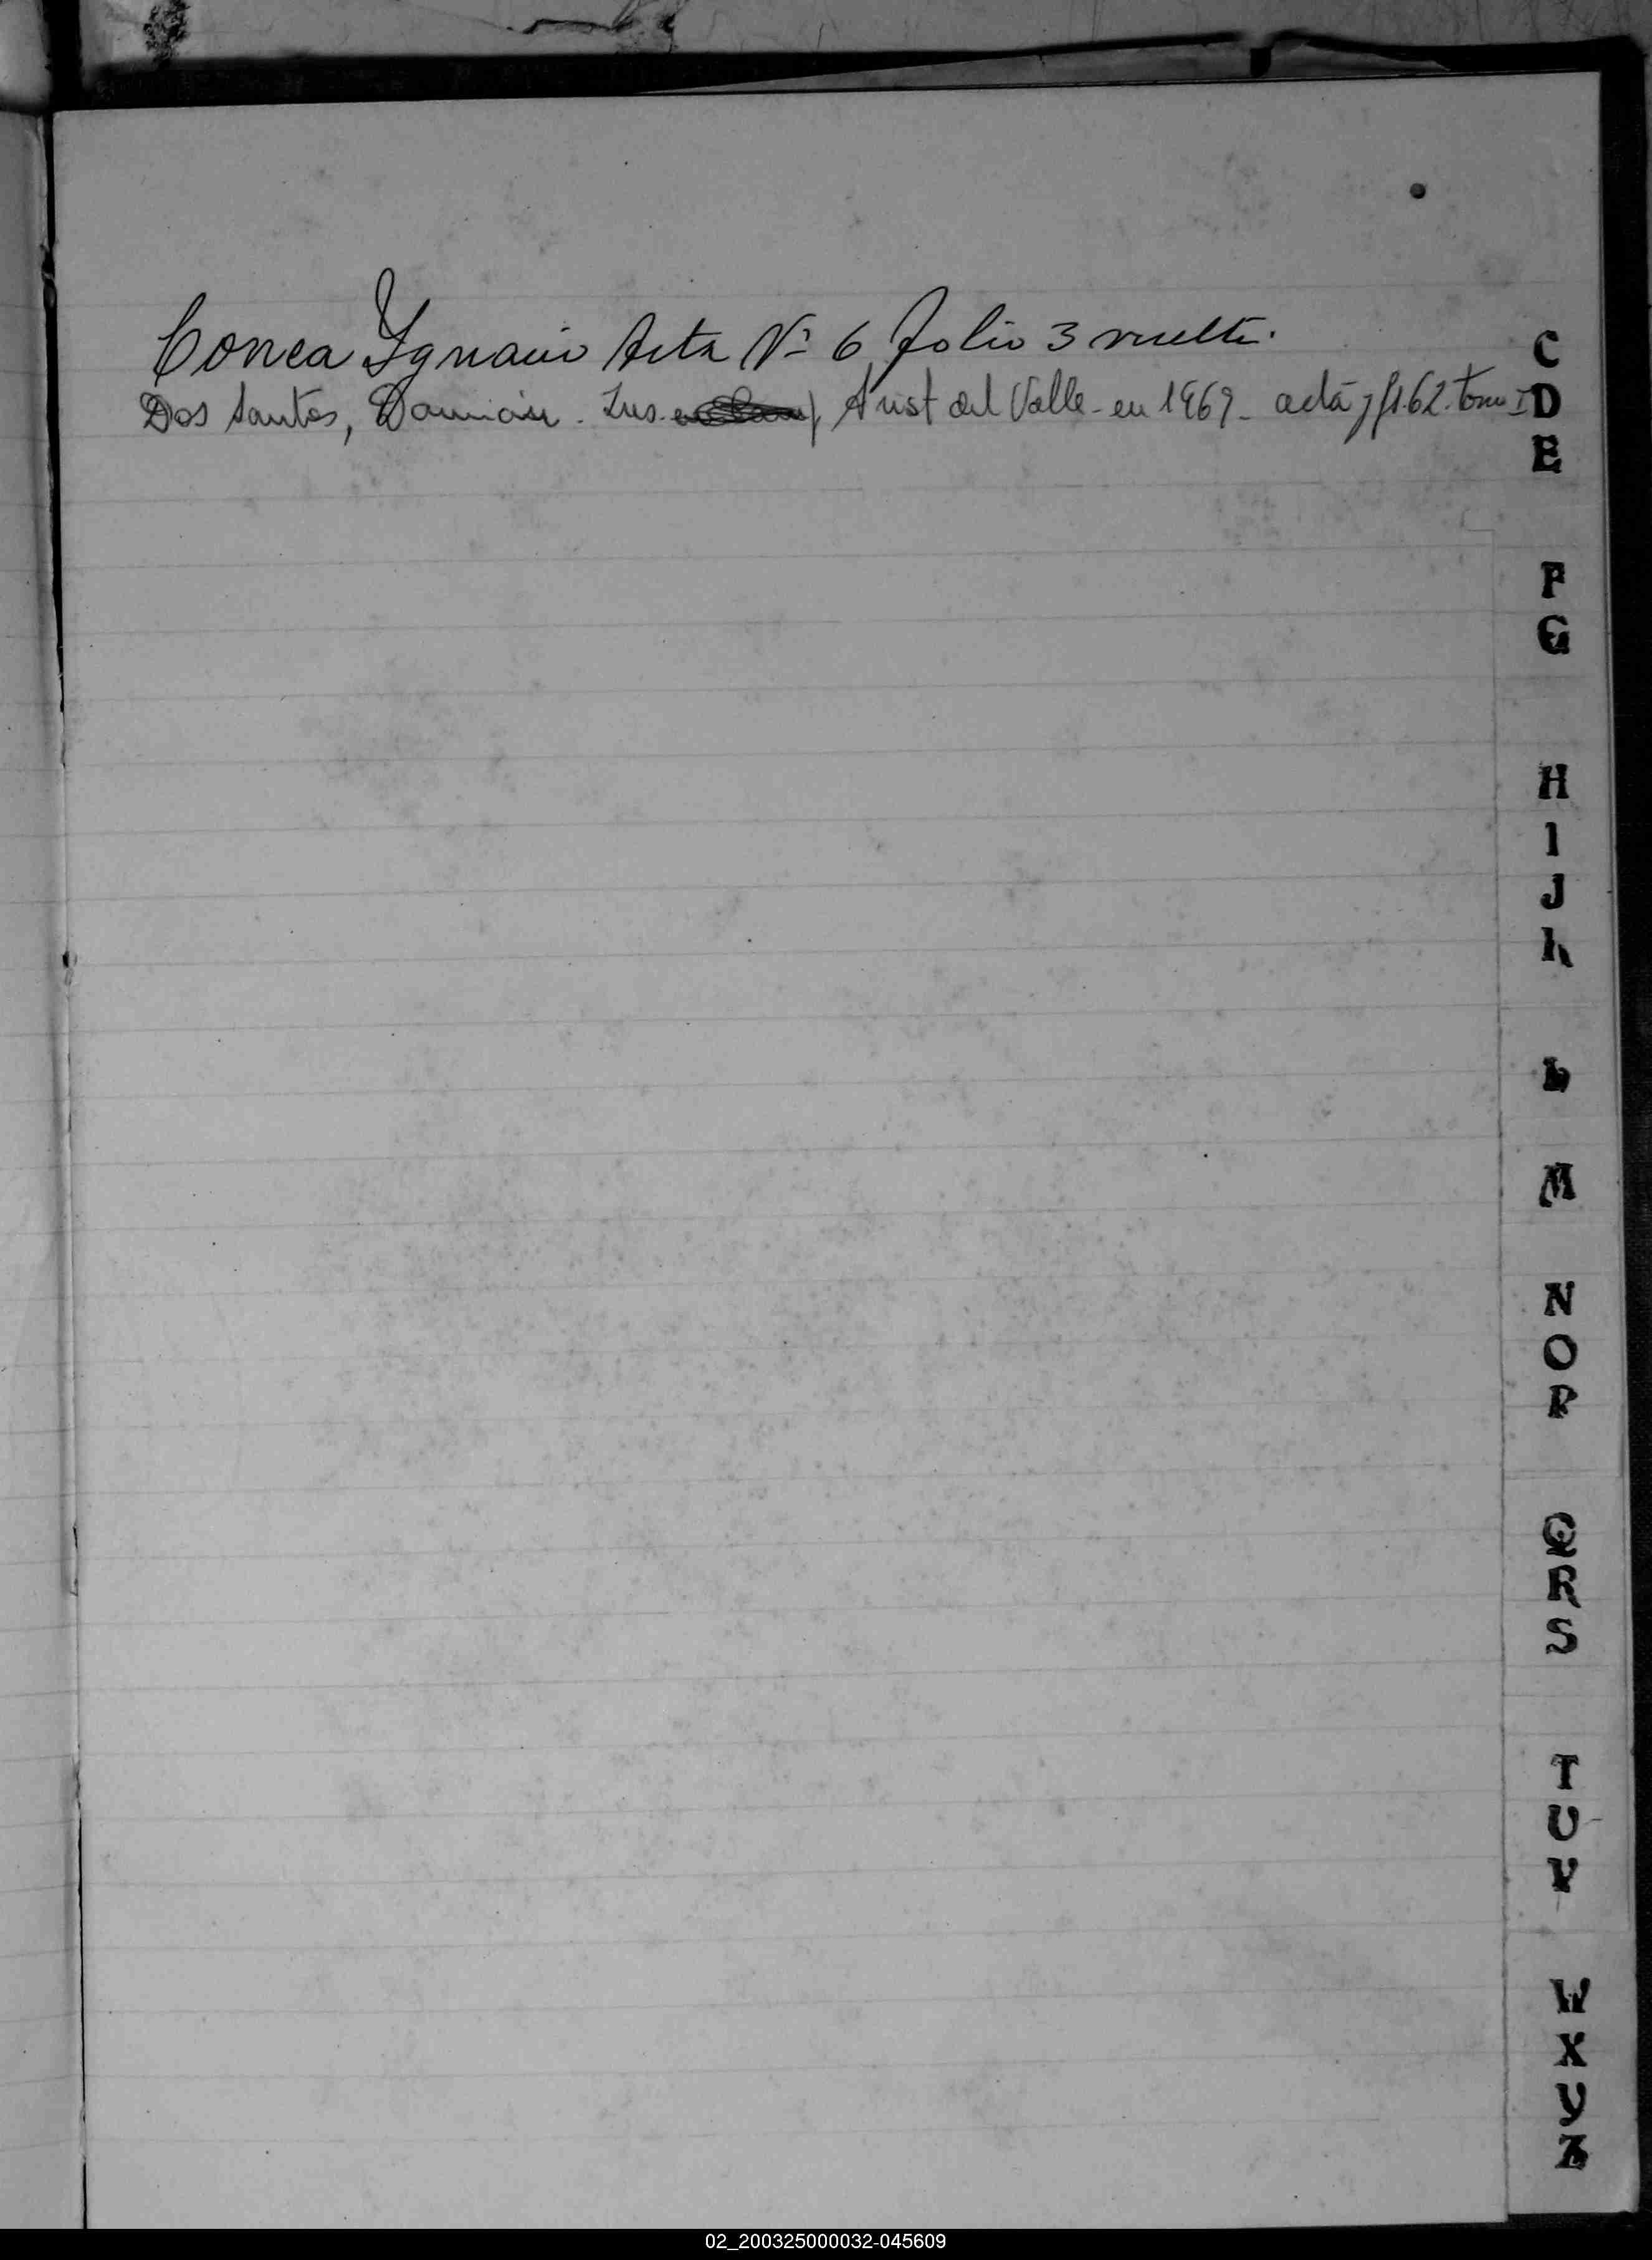 Correa Ygnacio Acta Nº 6 folio 3 vuelta.
Dos Santos, Damián. Ins. Arist del Valle - en 1969 - acta 7 fl. 62. tomo I
C
D
E
F
G
H
I
J
K
L
M
N
O
P
Q
R
S
T
U
V
W
X
Y
Z
02_200325000032-045609